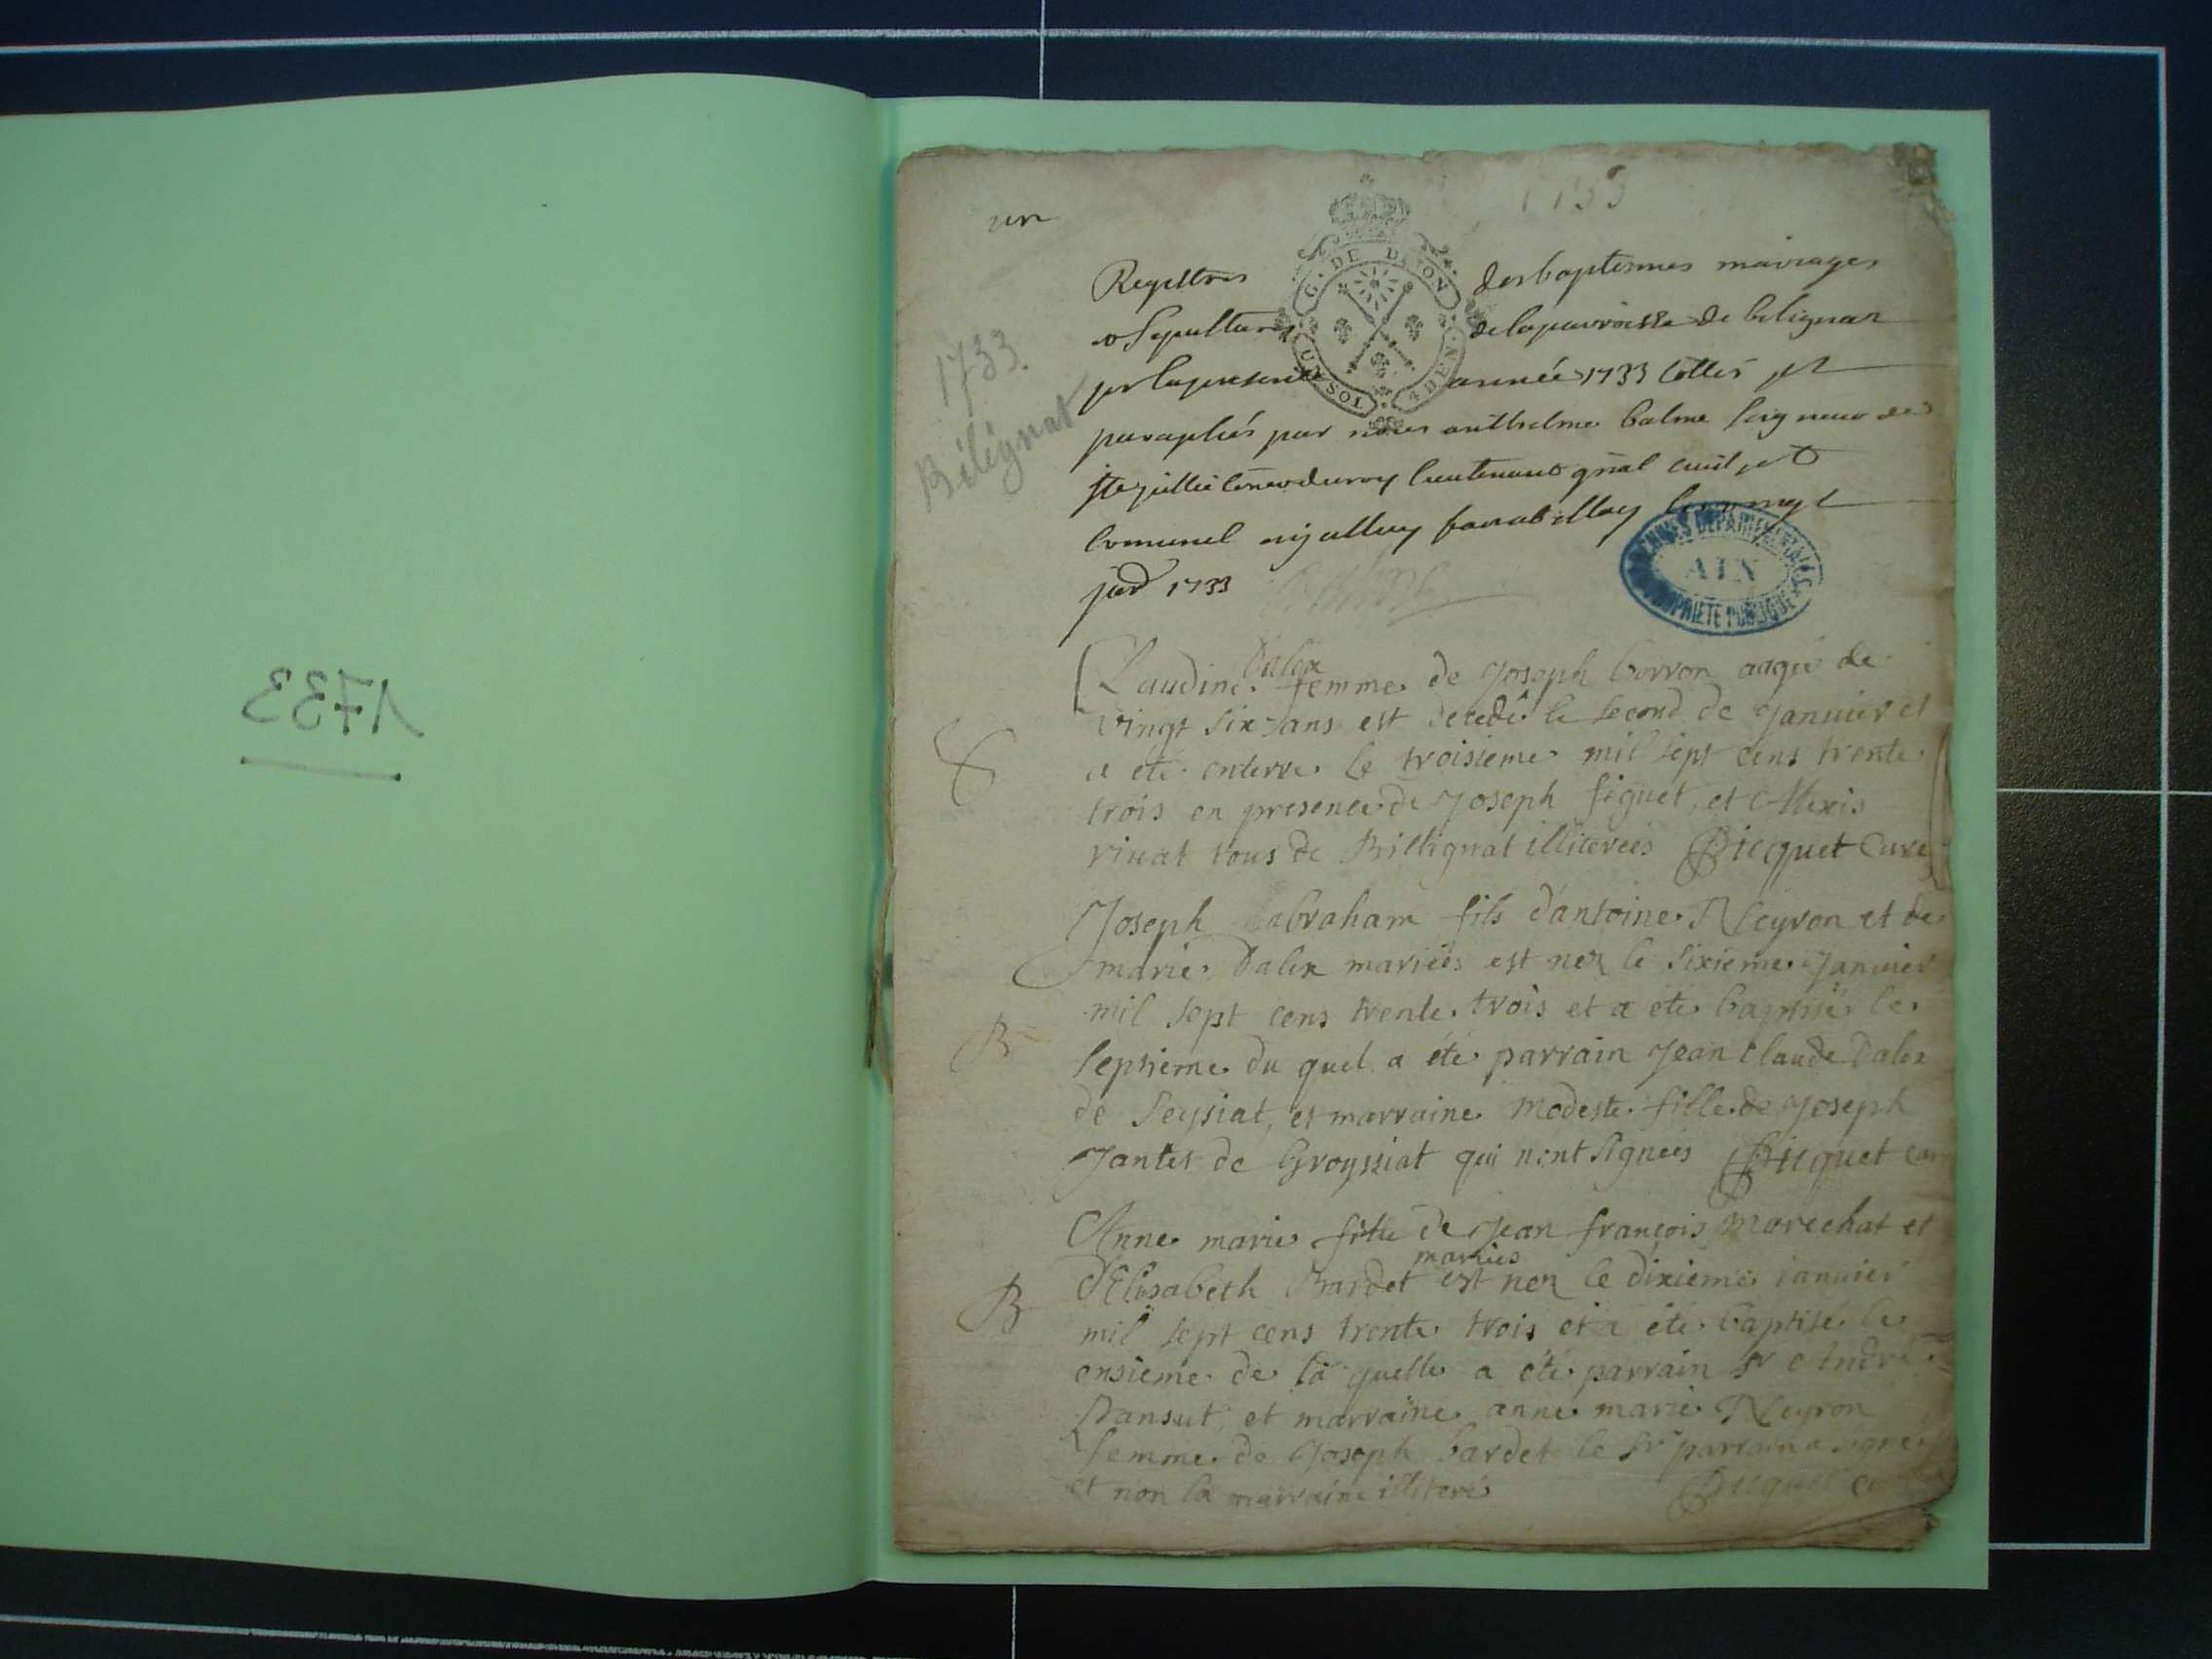 1733
un
1733
1733.
Bélignat
G. DE DIJON
UN SOL 4 DEN.
Registres des baptesmes mariages
et Sepultures de la parroisse de belignat
pr la presente année 1733 Cottes et
paraphés par nous anthelme balme seigneur de
Ste jullie Conser du roy lieutenant gnal civil et
Criminel
1733
ARCHIVES DEPARTEMENTALES
AIN
PROPRIETE PUBLIQUE
Claudine Dalex femme de Joseph borron aagée de
vingt six ans est decedé le second de Janvier et
a été enterré le troisieme mil sept cens trente
trois en presence de Joseph figuet, et Alexis
rivat tous de Billignat illiterées Bicquet Curé
S
Joseph abraham fils d'antoine Neyron et de
marie Dalex mariées est nez le sixieme Janvier
B mil sept cens trente trois et a eté baptisé le
septieme du quel a été parrain Jean Claude Dalex
de Seyssiat, et marraine modeste fille de Joseph
Jantet de Groyssiat qui nont signées Bicquet cur
Anne marie fille de Jean françois marechat et
mariés
B d'Elisabeth Bardet est nez le dixieme janvier
mil sept cens trente trois et a été baptisé le
onsieme de la quelle a été parrain Sr André
Pansut, et marraine anne marie Neyron
femme de Joseph bardet le Sr parrain a signé
et non la marraine illiteré Bicquet curé